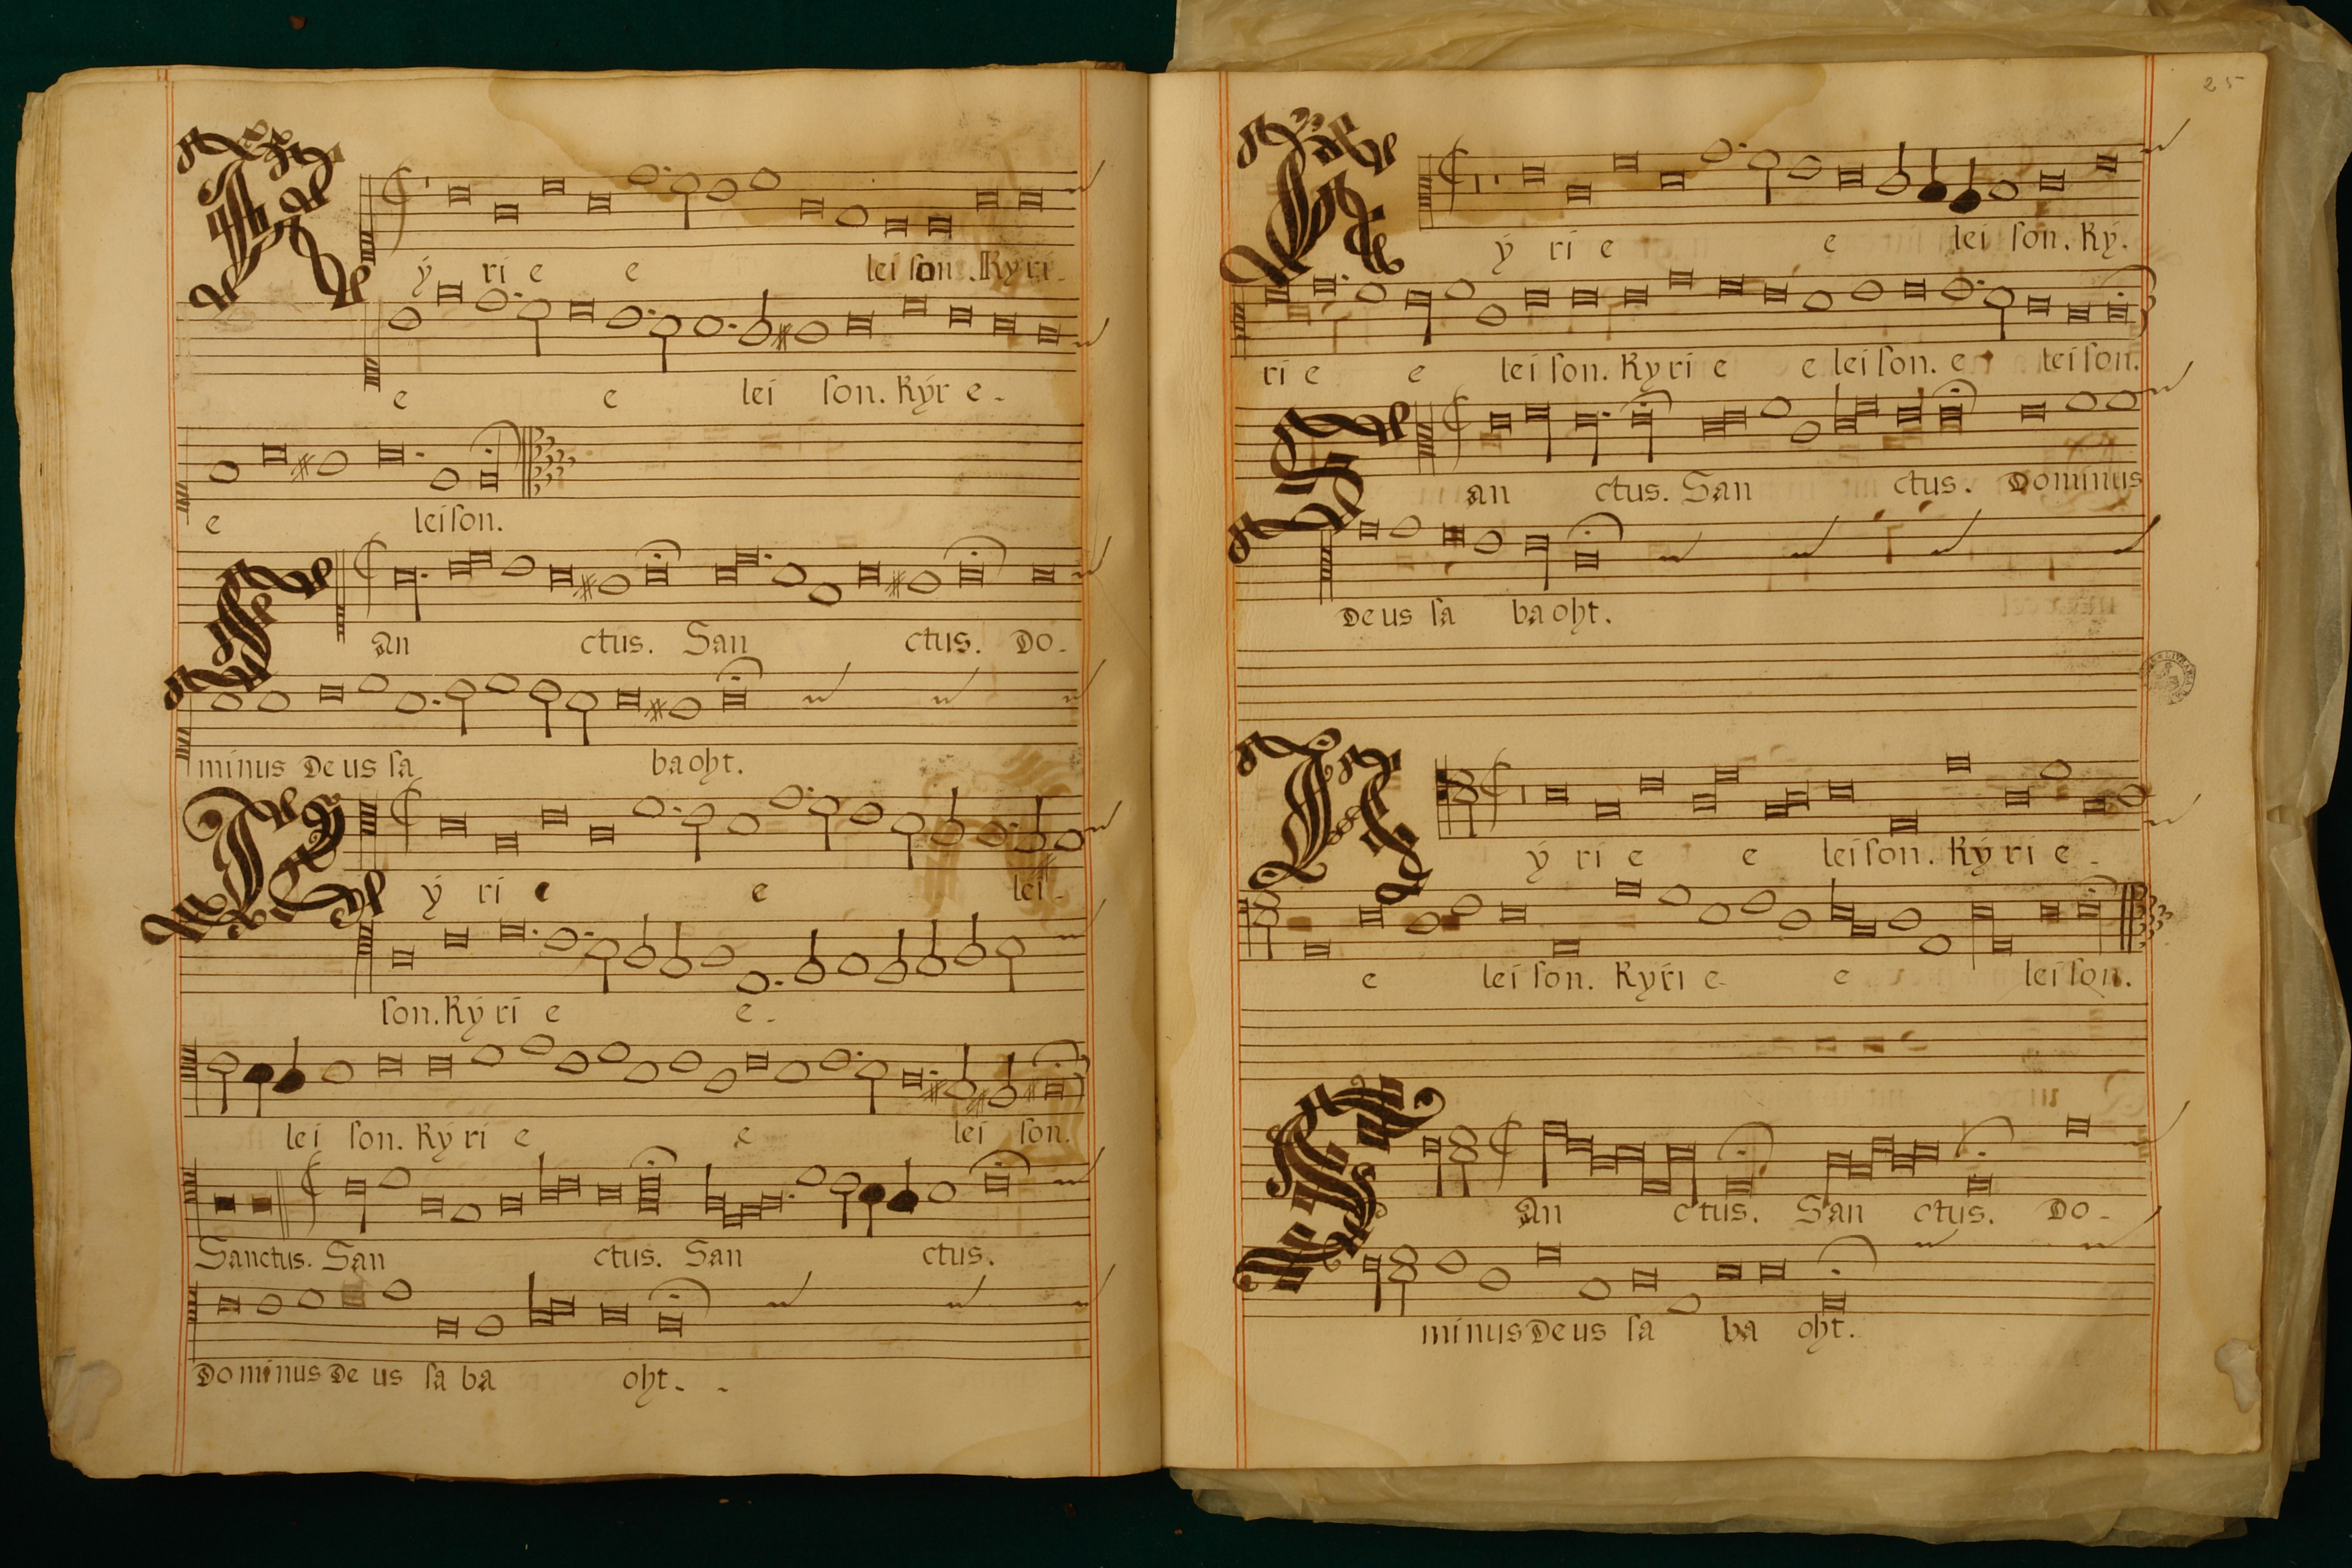 Ký ri e e lei ſon. Ky ri-
e e lei ſon. Kýr e-
e leiſon.
San ctus. San ctus. Do-
minus Deus ſa baoht.
Ký ri e e lei-
ſon. Ký ri e e-
lei ſon. Ký ri e e lei ſon.
Sanctus. San ctus. San ctus.
Dominus Deus ſa ba oht.
25
Ký ri e e lei ſon. Ký.
ri e e lei ſon. Ky ri e e lei ſon. e leiſon.
San ctus. San ctus. Dominus
Deus ſa baoht.
Ký ri e e leiſon. Ký ri e-
e lei ſon. Kyri e e leiſon.
San ctus. San ctus. Do-
minus Deus ſa ba oht.